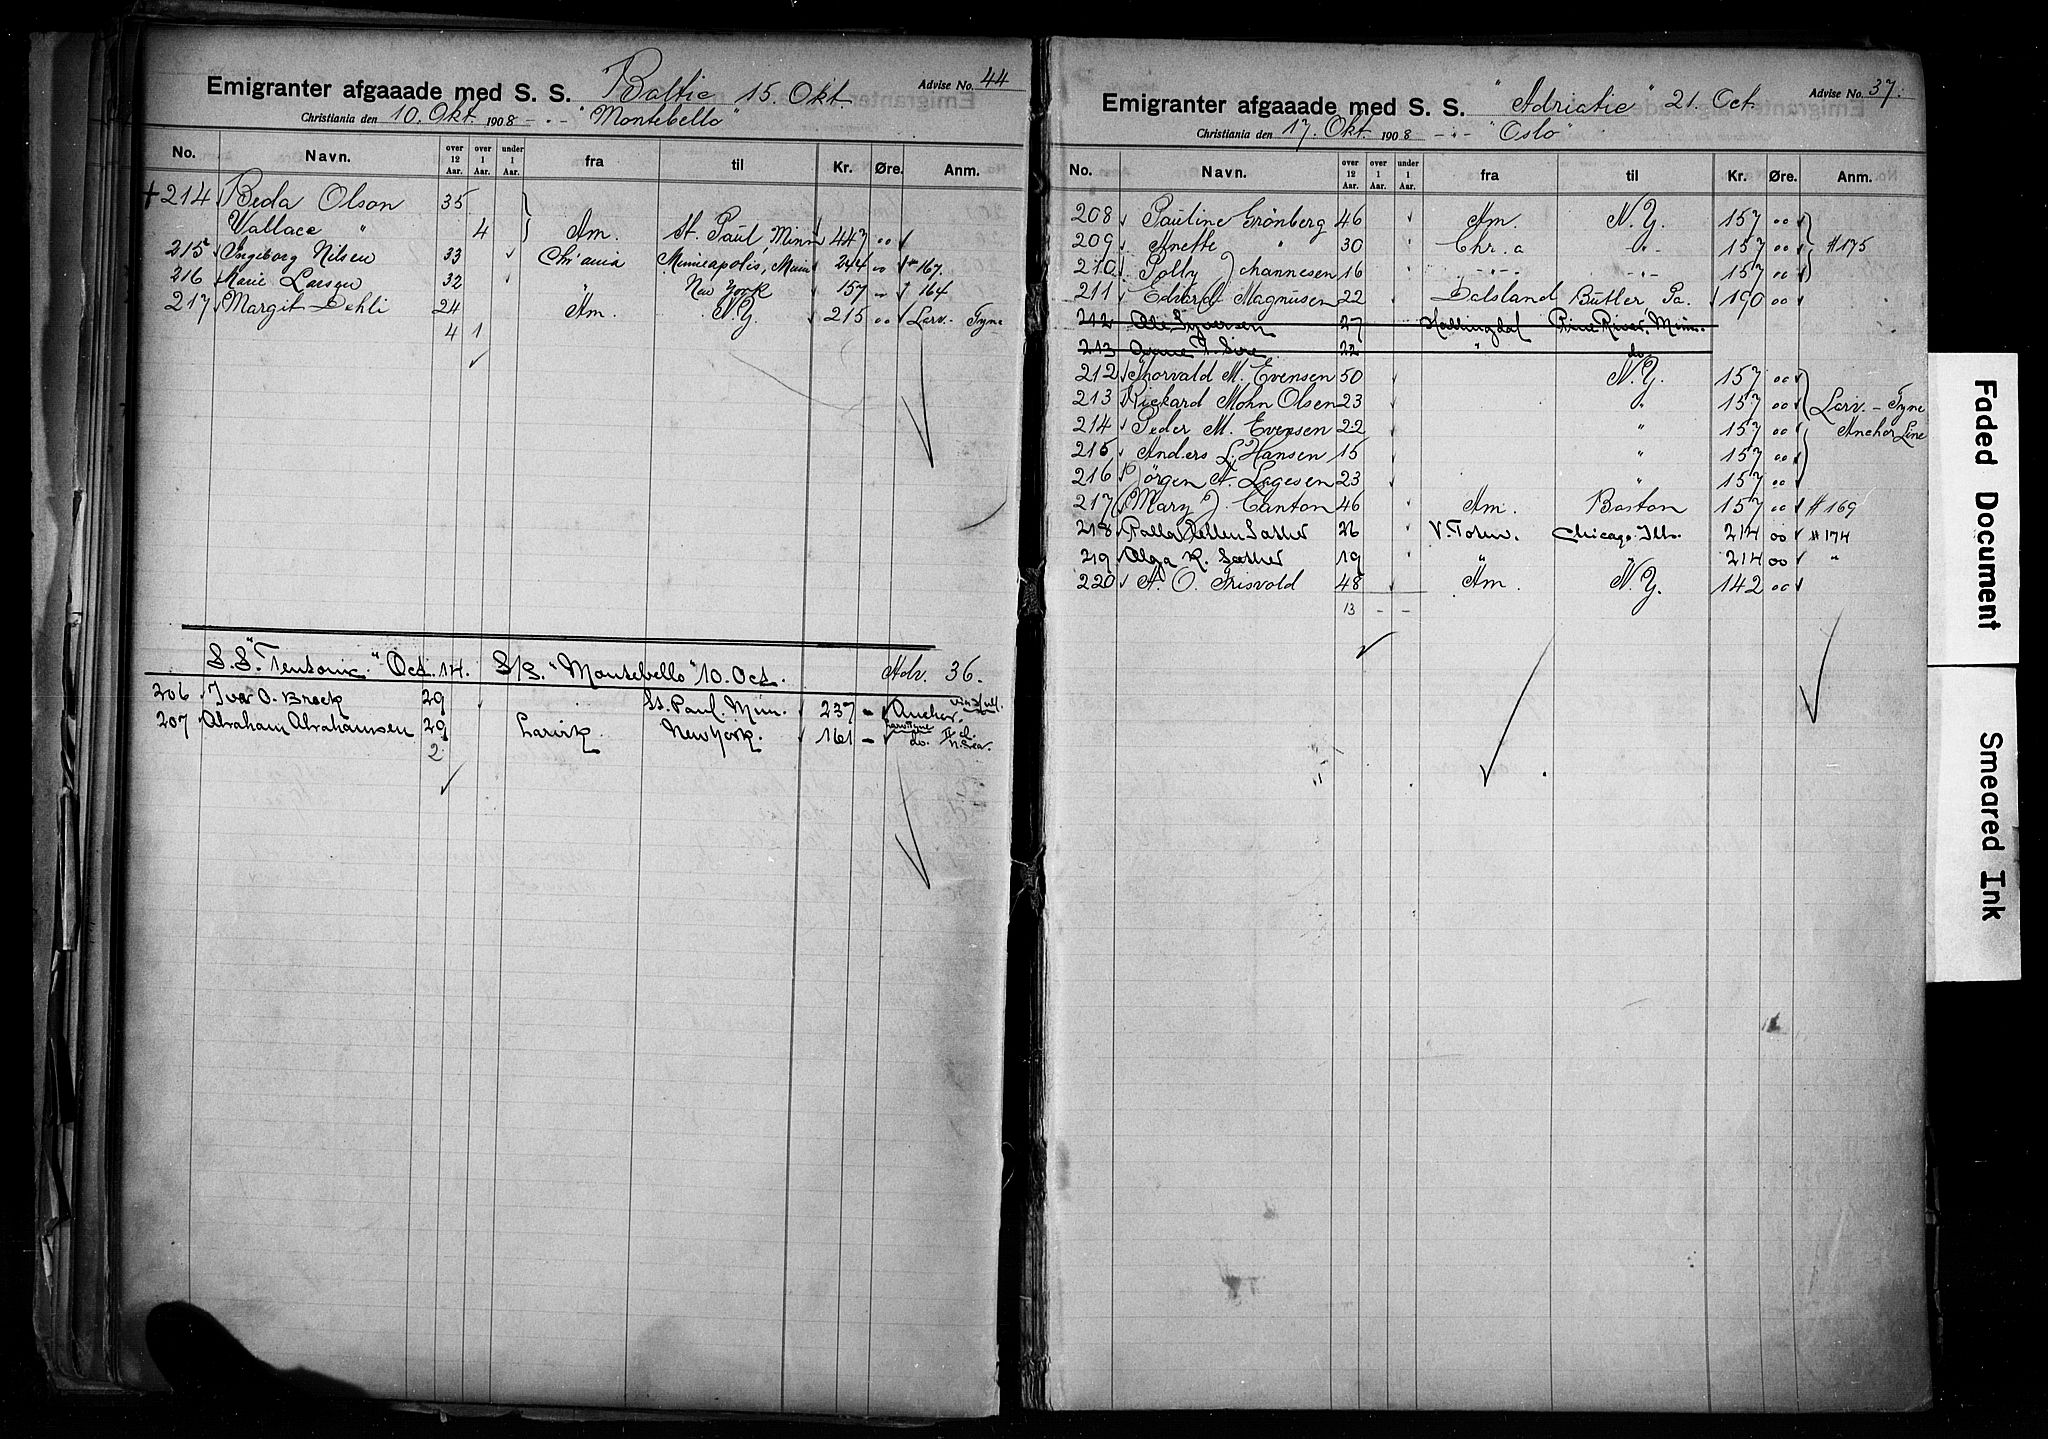 Emigranter afgaaade med S. S. Baltic 15. Okt. Advise No. 44
Christiania den 10. Okt. 1908 - " - "Montebello"
No. Navn. over 12 Aar. over 1 Aar. under 1 Aar. fra til Kr. Øre. Anm.
+ 214 Beda Olson 35 Am. St. Paul Minn 447 00
Wallace " 4
215 Ingeborg Nilsen 33 Chr'ania Minneapolis, Minn 244 00 # 167.
216 Marie Larsen 32 " New York 157 " # 164
217 Margit Dehli 24 Am. N.Y. 215 00 Larv. - Tyne
4 1
S.S. "Teutonic" Oct. 14. S/S. "Montebello" 10. Oct. Adv. 36.
206 Ivar O. Broek 29 St. Paul. Minn. 237 - Anchor.
207 Abraham Abrahamsen 29 Larvik New York. 161 - do.
2
Emigranter afgaaade med S. S. "Adriatic" 21. Oct. Advise No. 37.
Christiania den 17. Okt. 1908 - " - "Oslo"
No. Navn. over 12 Aar. over 1 Aar. under 1 Aar. fra til Kr. Øre. Anm.
208 Pauline Grönberg 46 Am. N.Y. 157 00
209 Anette " 30 Chr.a - " - 157 00 # 175
210 Solby Johannesen 16 - " - - " - 157 00
211 Edvard Magnusen 22 Dalsland Butler Pa. 190 00
212 Ole Syversen 27 Hallingdal Pine River, Minn.
213 22 " do
212 Thorvald M. Evensen 50 N.Y. 157 00
213 Rickard Mohn Olsen 23 " 157 00 Larv. - Tyne
214 Peder M. Evensen 22 " 157 00 Anchor Line
215 Anders L. Hansen 15 " 157 00
216 Jörgen A. Lagesen 23 " 157 00
217 Mary J. Canton 46 Am. Boston 157 00 # 169
218 26 V. Toten. Chicago. Ill. 214 00 # 174
219 Olga K. Sæther 19 " " 214 00 "
220 A. O. Grisvold 48 Am. N.Y. 142 00
13 - -
Faded Document
Smeared Ink